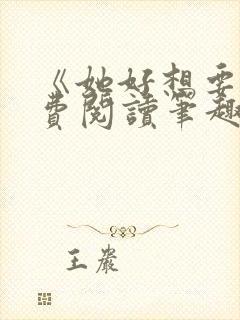 《她好想要
費閱讀筆趣
王巖